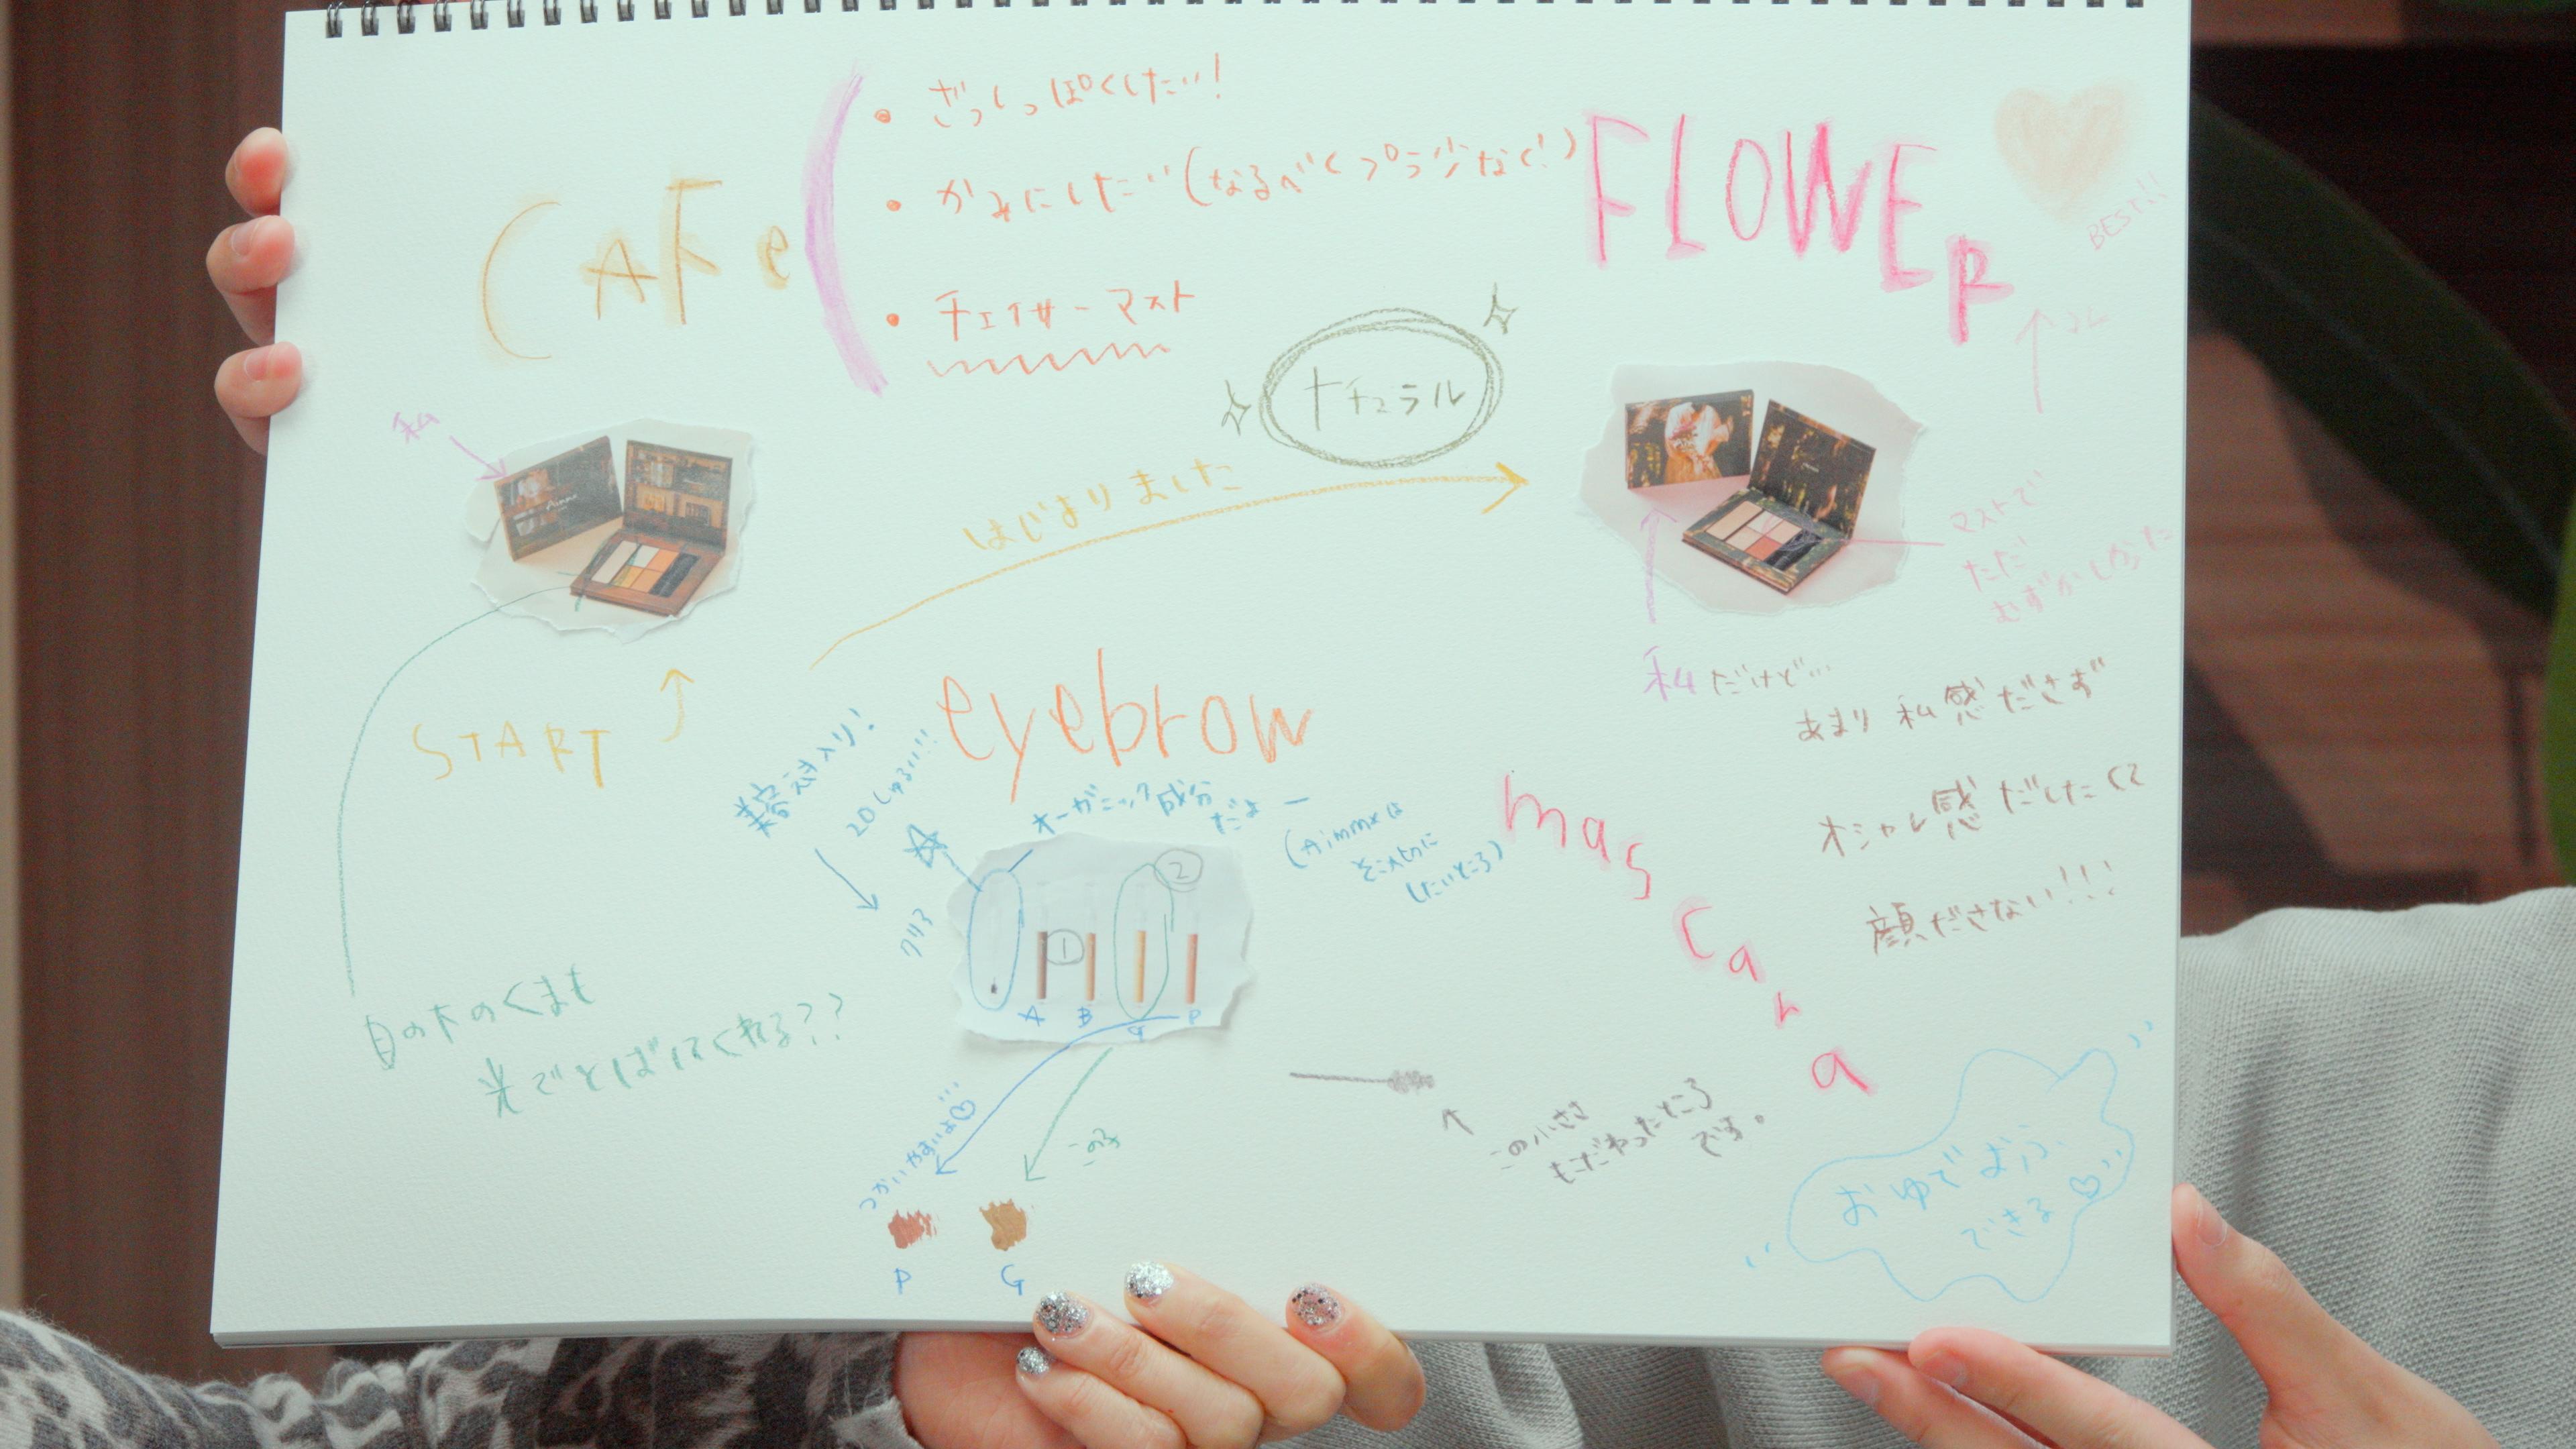 CAFe
・ざっしっぽくしたい!
・かみにしたい(なるべくプラ少なく!)
・チェイサーマスト
FLOWER
BEST!!
ナチュラル
私
はじまりました
START
マストで
ただ!
むずかしかった
私だけど…
あまり私感ださず
オシャレ感だしたくて
顔ださない!!!
eyebrow
美容液入り!
20しゅるい!!!
オーガニック成分
だよー
(Aimmxは
そこ大切に
したいところ)
クリア
①
②
A
B
G
P
目の下のくまも
光でとばしてくれる??
つかいやすいよ♡
この子
P
G
mascara
この小ささ
もこだわったところ
です。
おゆでおふ
できる♡